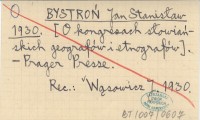 O BYSTROŃ Jan Stanisław
1930. [O kongresach słowiań-
skich geografów i etnografów].
- Prager Presse.
Rec.: "Wąsowicz J. 1930.
BT/007/0607